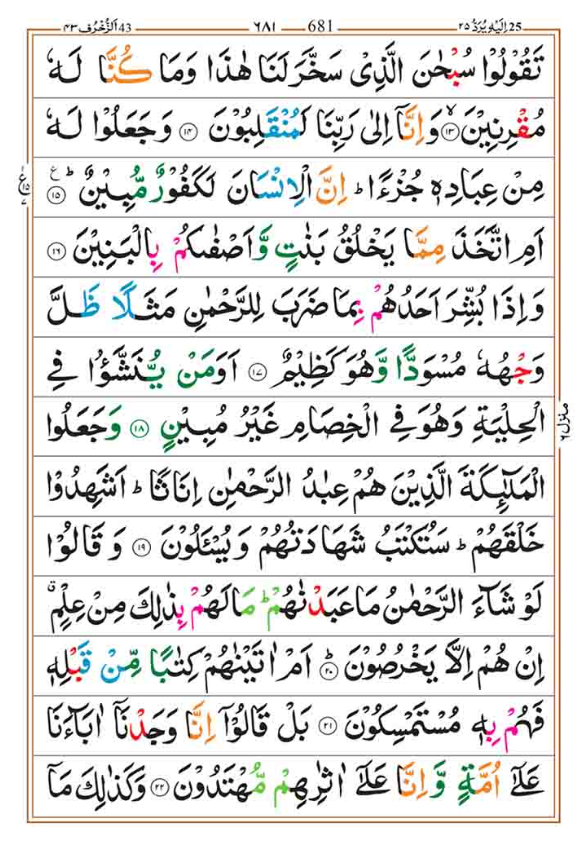 25 اِلَيْهِ يُرَدُّ ٢٥ 681 ٦٨١ 43 اَلزُّخْرُف ٤٣
تَقُوْلُوْا سُبْحٰنَ الَّذِیْ سَخَّرَ لَنَا هٰذَا وَمَا كُنَّا لَهٗ
مُقْرِنِيْنَ ۙ‏ ﴿۱۳﴾ وَاِنَّاۤ اِلٰى رَبِّنَا لَمُنْقَلِبُوْنَ ﴿۱۴﴾ وَجَعَلُوْا لَهٗ
مِنْ عِبَادِهٖ جُزْءًا ؕ اِنَّ الْاِنْسَانَ لَكَفُوْرٌ مُّبِيْنٌ ؕ ﴿۱۵﴾ ع
اَمِ اتَّخَذَ مِمَّا يَخْلُقُ بَنٰتٍ وَّاَصْفٰٮكُمْ بِالْبَنِيْنَ ﴿۱۶﴾
وَاِذَا بُشِّرَ اَحَدُهُمْ بِمَا ضَرَبَ لِلرَّحْمٰنِ مَثَلًا ظَلَّ
وَجْهُهٗ مُسْوَدًّا وَّهُوَ كَظِيْمٌ ﴿۱۷﴾ اَوَمَنْ يُّنَشَّؤُا فِى
الْحِلْيَةِ وَهُوَ فِى الْخِصَامِ غَيْرُ مُبِيْنٍ ﴿۱۸﴾ وَجَعَلُوا
الْمَلٰٓٮِٕكَةَ الَّذِيْنَ هُمْ عِبٰدُ الرَّحْمٰنِ اِنَاثًا ؕ اَشَهِدُوْا
خَلْقَهُمْ ؕ سَتُكْتَبُ شَهَادَتُهُمْ وَيُسْئَلُوْنَ ﴿۱۹﴾ وَقَالُوْا
لَوْ شَآءَ الرَّحْمٰنُ مَا عَبَدْنٰهُمْ ؕ مَا لَهُمْ بِذٰلِكَ مِنْ عِلْمٍ ۗ
اِنْ هُمْ اِلَّا يَخْرُصُوْنَ ؕ ﴿۲۰﴾ اَمْ اٰتَيْنٰهُمْ كِتٰبًا مِّنْ قَبْلِهٖ
فَهُمْ بِهٖ مُسْتَمْسِكُوْنَ ﴿۲۱﴾ بَلْ قَالُوْۤا اِنَّا وَجَدْنَاۤ اٰبَآءَنَا
عَلٰٓى اُمَّةٍ وَّاِنَّا عَلٰٓى اٰثٰرِهِمْ مُّهْتَدُوْنَ ﴿۲۲﴾ وَكَذٰلِكَ مَاۤ
منزل ٦